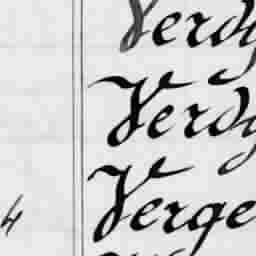 Verdy
Verdy
4 Verge